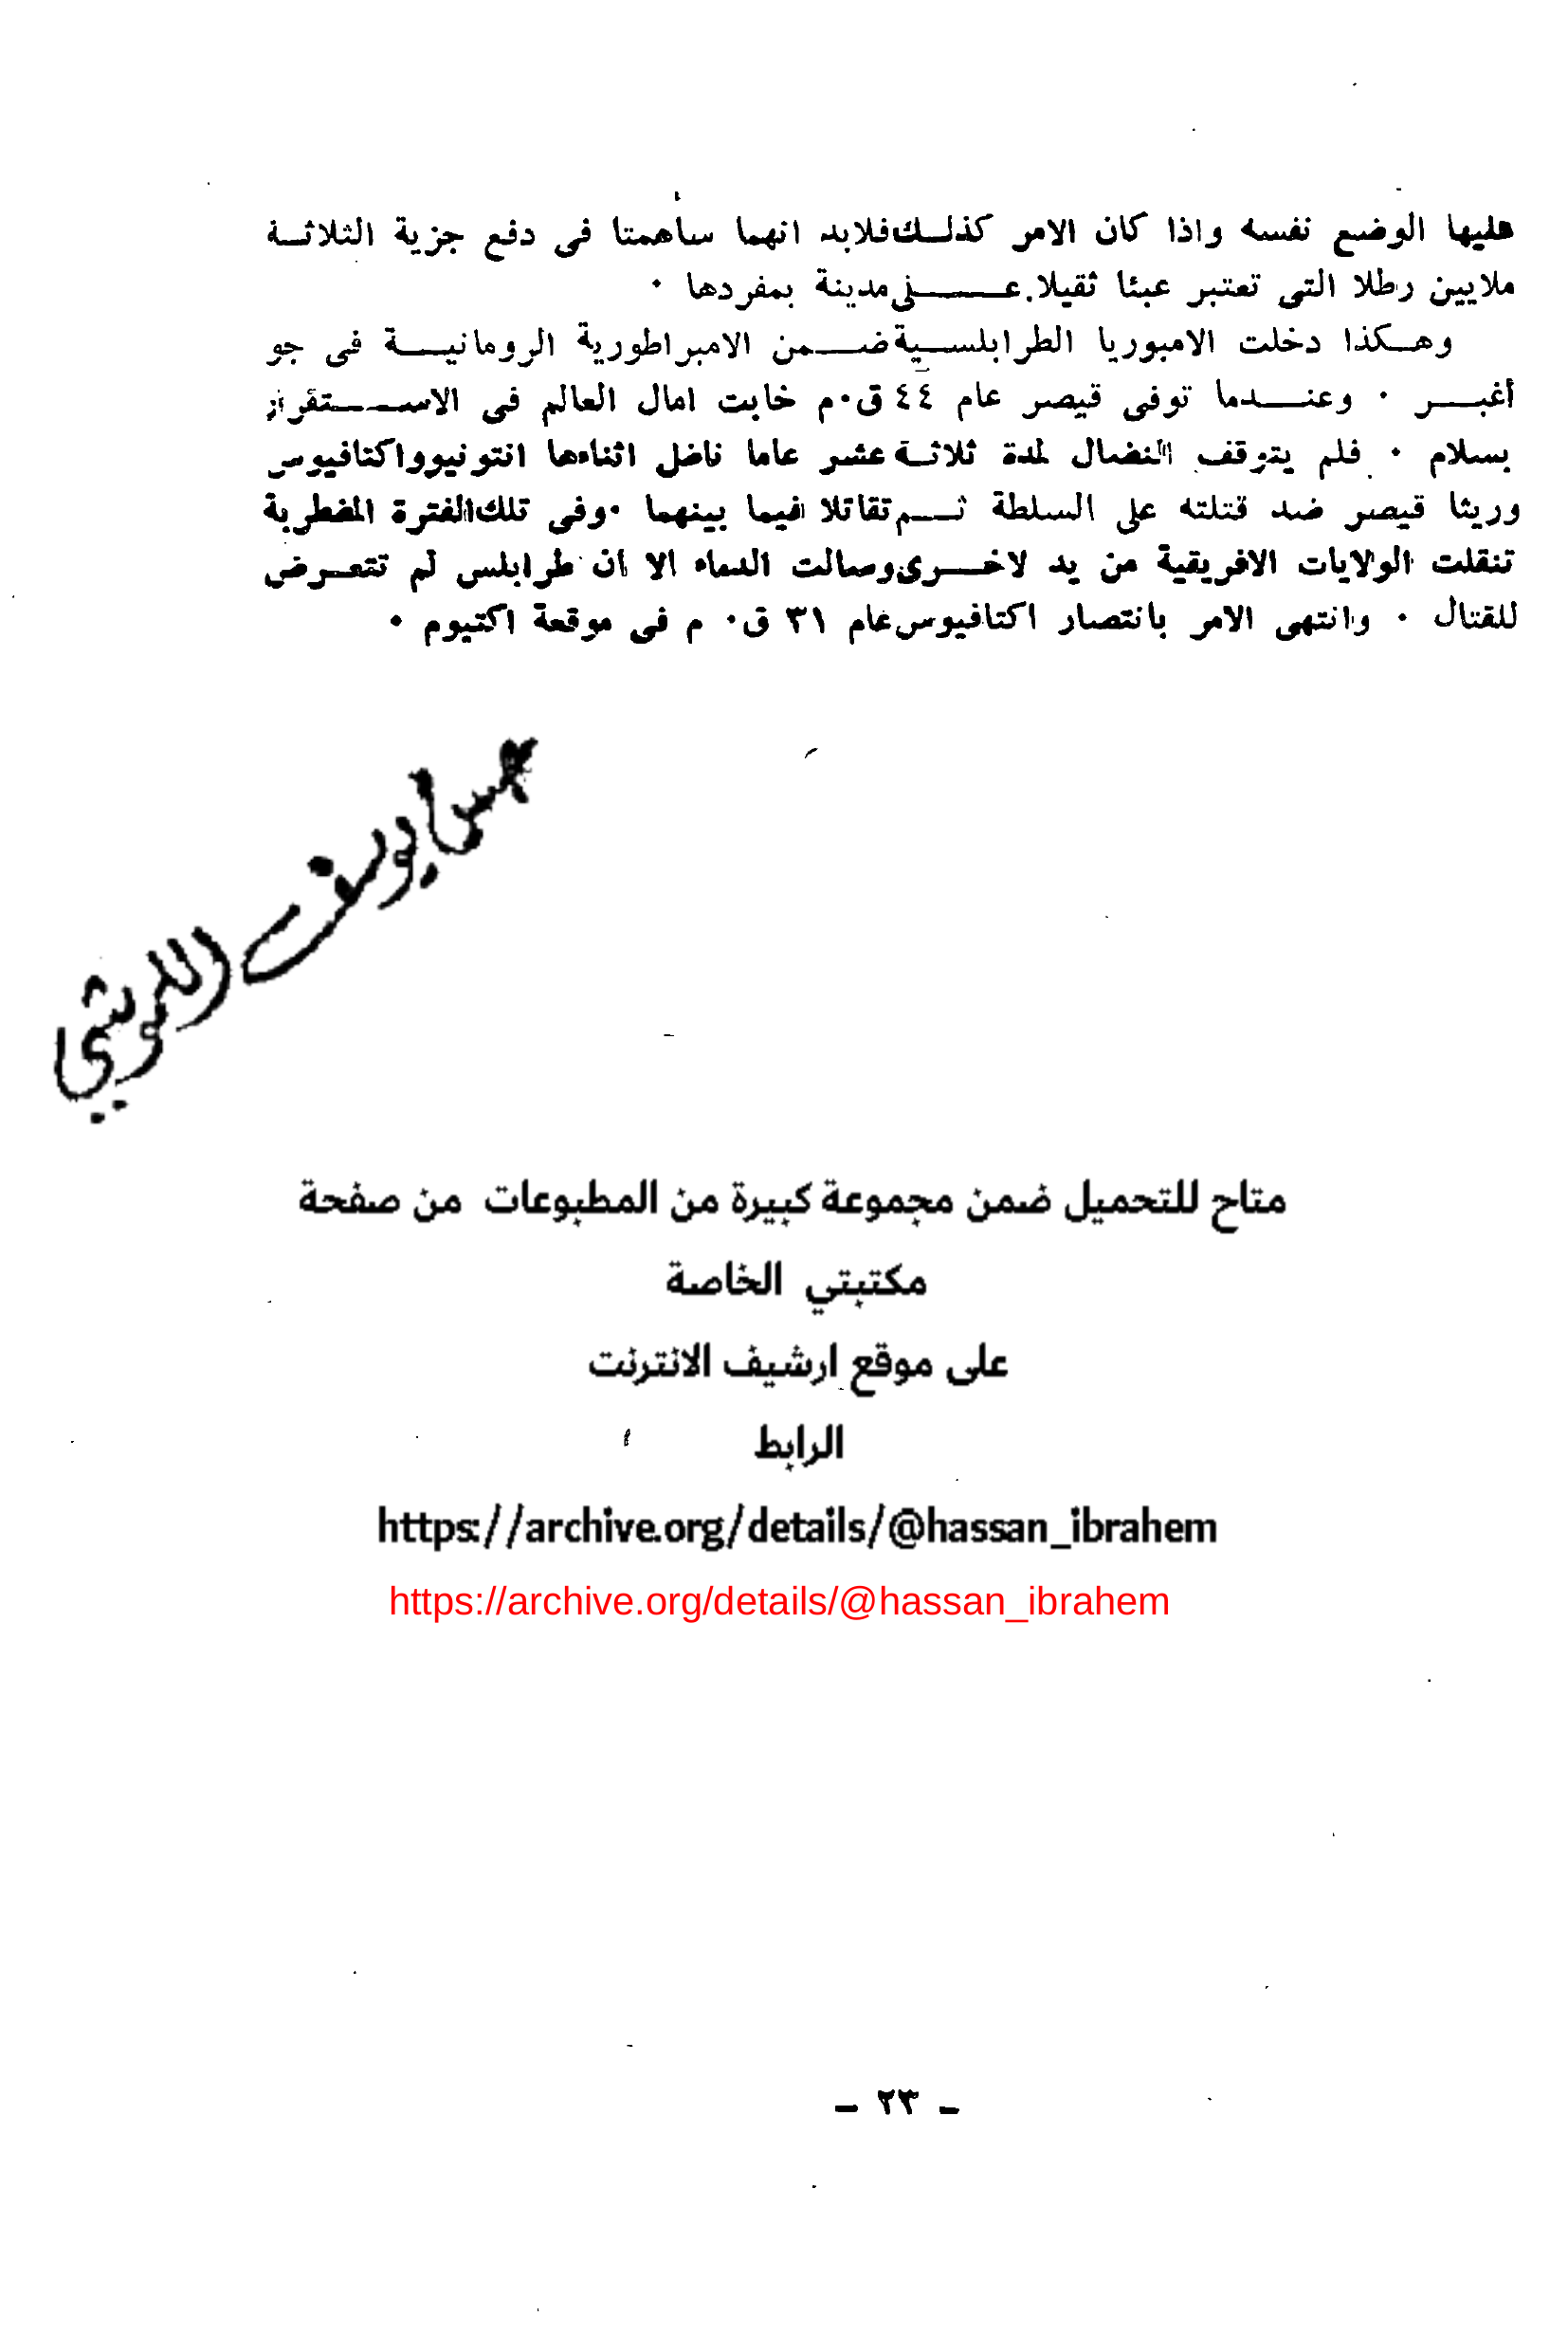 عليها الوضع نفسه واذا كان الامر كذلك فلابد انهما ساهمتا فى دفع جزية الثلاثة
ملايين رطلا التى تعتبر عبئا ثقيلا على مدينة بمفردها ٠
وهكذا دخلت الامبوريا الطرابلسية ضمن الامبراطورية الرومانية فى جو
أغبر ٠ وعندما توفى قيصر عام ٤٤ ق٠م خابت امال العالم فى الاستقرار
بسلام ٠ فلم يتوقف النضال لمدة ثلاثة عشر عاما ناضل اثناءها انتونيو واكتافيوس
وريثا قيصر ضد قتلته على السلطة ثم تقاتلا فيما بينهما ٠ وفى تلك الفترة المضطربة
تنقلت الولايات الافريقية من يد لاخرى وسالت الدماء الا ان طرابلس لم تتعرض
للقتال ٠ وانتهى الامر بانتصار اكتافيوس عام ٣١ ق٠ م فى موقعة اكتيوم ٠
يوسف
متاح للتحميل ضمن مجموعة كبيرة من المطبوعات من صفحة
مكتبتي الخاصة
على موقع ارشيف الانترنت
الرابط
https://archive.org/details/@hassan_ibrahem
https://archive.org/details/@hassan_ibrahem
– ٢٣ –